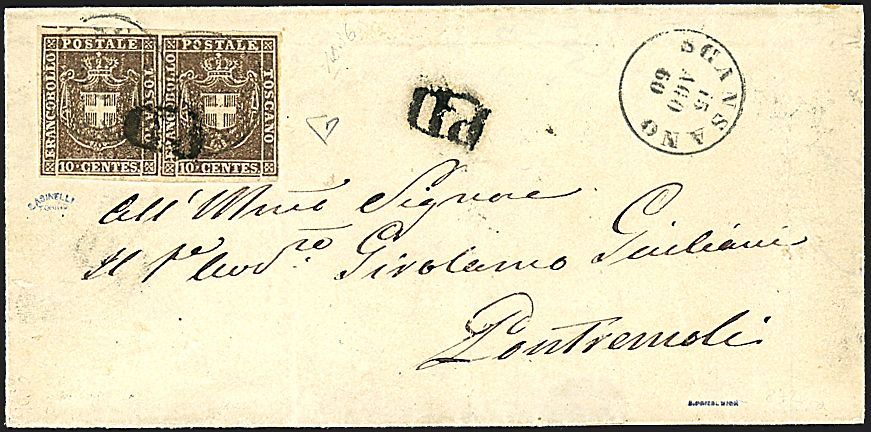 FRANCOBOLLO POSTALE TOSCANO 10 CENTES.
FRANCOBOLLO POSTALE TOSCANO 10 CENTES.
PD
PD
SCANSANO
15
AGO
60
All' Signore
Il Girolamo Giuliani
Pontremoli